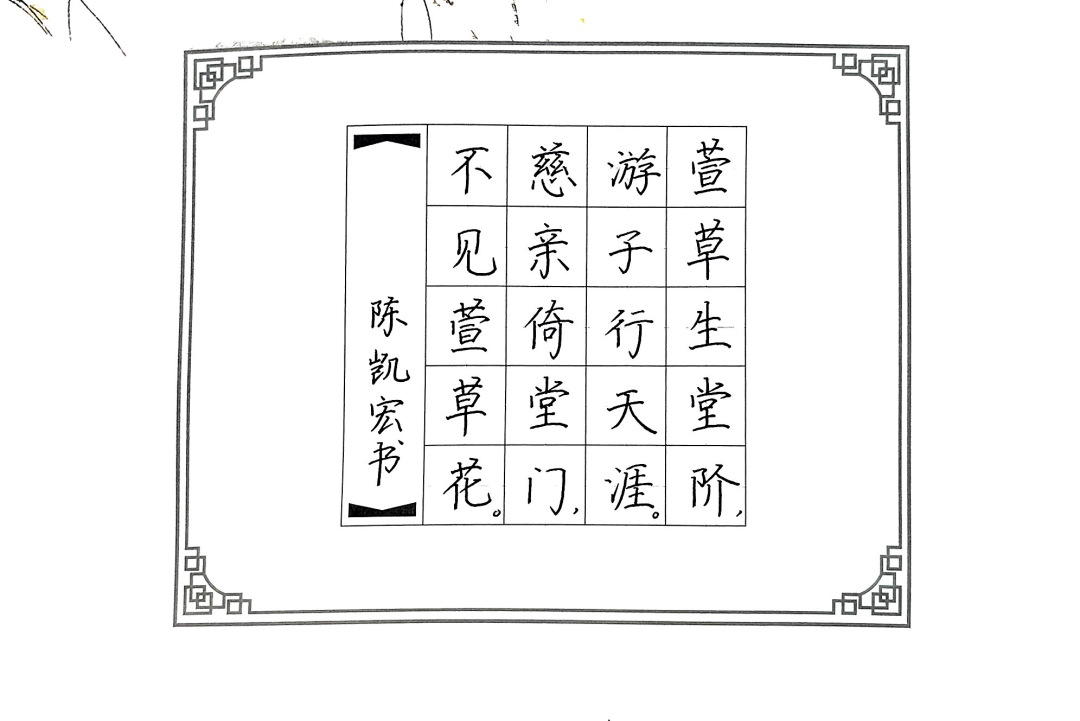 萱草生堂阶，
游子行天涯。
慈亲倚堂门，
不见萱草花。
陈凯宏书